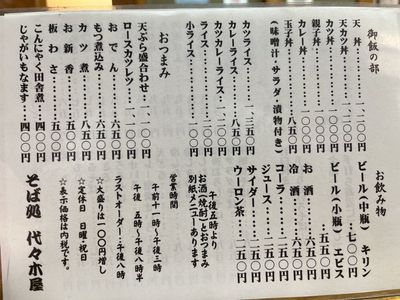 御飯の部
天丼
天カツ丼
カツ丼
親子丼
カレー丼
玉子丼……八五〇円
(味噌汁・サラダ 漬物付き)
カツライス……一、三五〇円
カレーライス……八五〇円
カツカレーライス
ライス
小ライス
おつまみ
天ぷら盛合わせ
ロースカツレツ
おでん……六五〇円
もつ煮込み……六五〇円
カツ煮……八五〇円
お新香……五五〇円
板わさ……五五〇円
こんにゃく田舎煮……四〇〇円
じゃがいもなます……四〇〇円
お飲み物
ビール(中瓶) キリン
……七〇〇円
ビール(小瓶) エビス
……五五〇円
お酒……六五〇円
冷酒
コーラ……二五〇円
ジュース……二五〇円
サイダー……二五〇円
ウーロン茶……二五〇円
午後五時より
お酒(焼酎)とおつまみ
別紙メニューあります
営業時間
午前十一時〜午後三時
午後 五時〜午後八時半
ラストオーダー・午後八時
☆大盛りは一〇〇円増し
☆定休日 日曜・祝日
☆表示価格は内税です。
そば処 代々木屋